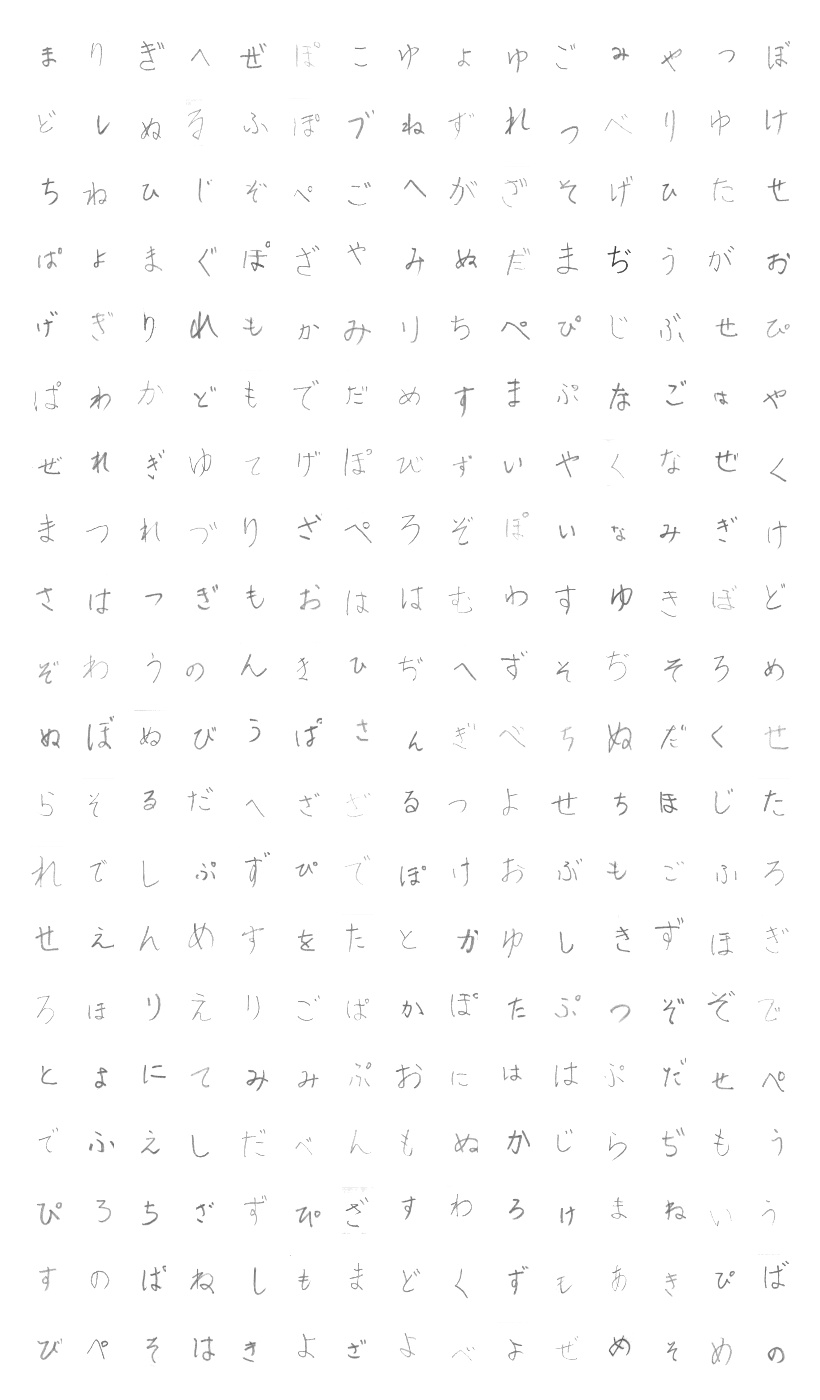 まりぎへぜぽこゆよゆごみやつぼ
どしぬるふぽづねずれっべりゆけ
ちねひじぞぺごへがざそげひたせ
ぱよまぐぽざやみぬだまぢうがお
げぎりれもかみりちぺぴじぶせぴ
ぱわかどもでだめすまぷなごはや
ぜれぎゆてげぽびずいやくなぜく
まつれづりざぺろぞぽいなみぎけ
さはつぎもおははむわすゆきぼど
ぞわうのんきひぢへずそぢそろめ
ぬぼぬびうぱさんぎべちぬだくせ
らそるだへざざるつよせちほじた
れでしぷずぴでぽけおぶもごふろ
せえんめすをたとかゆしきずほぎ
ろほりえりごぱかぽたぷつぞぞで
とよにてみみぷおにははぷだせぺ
でふえしだべんもぬかじらぢもう
ぴろちざずぴざすわろけまねいう
すのぱねしもまどくずもあきぴば
びぺそはきよざよべよぜめそめの